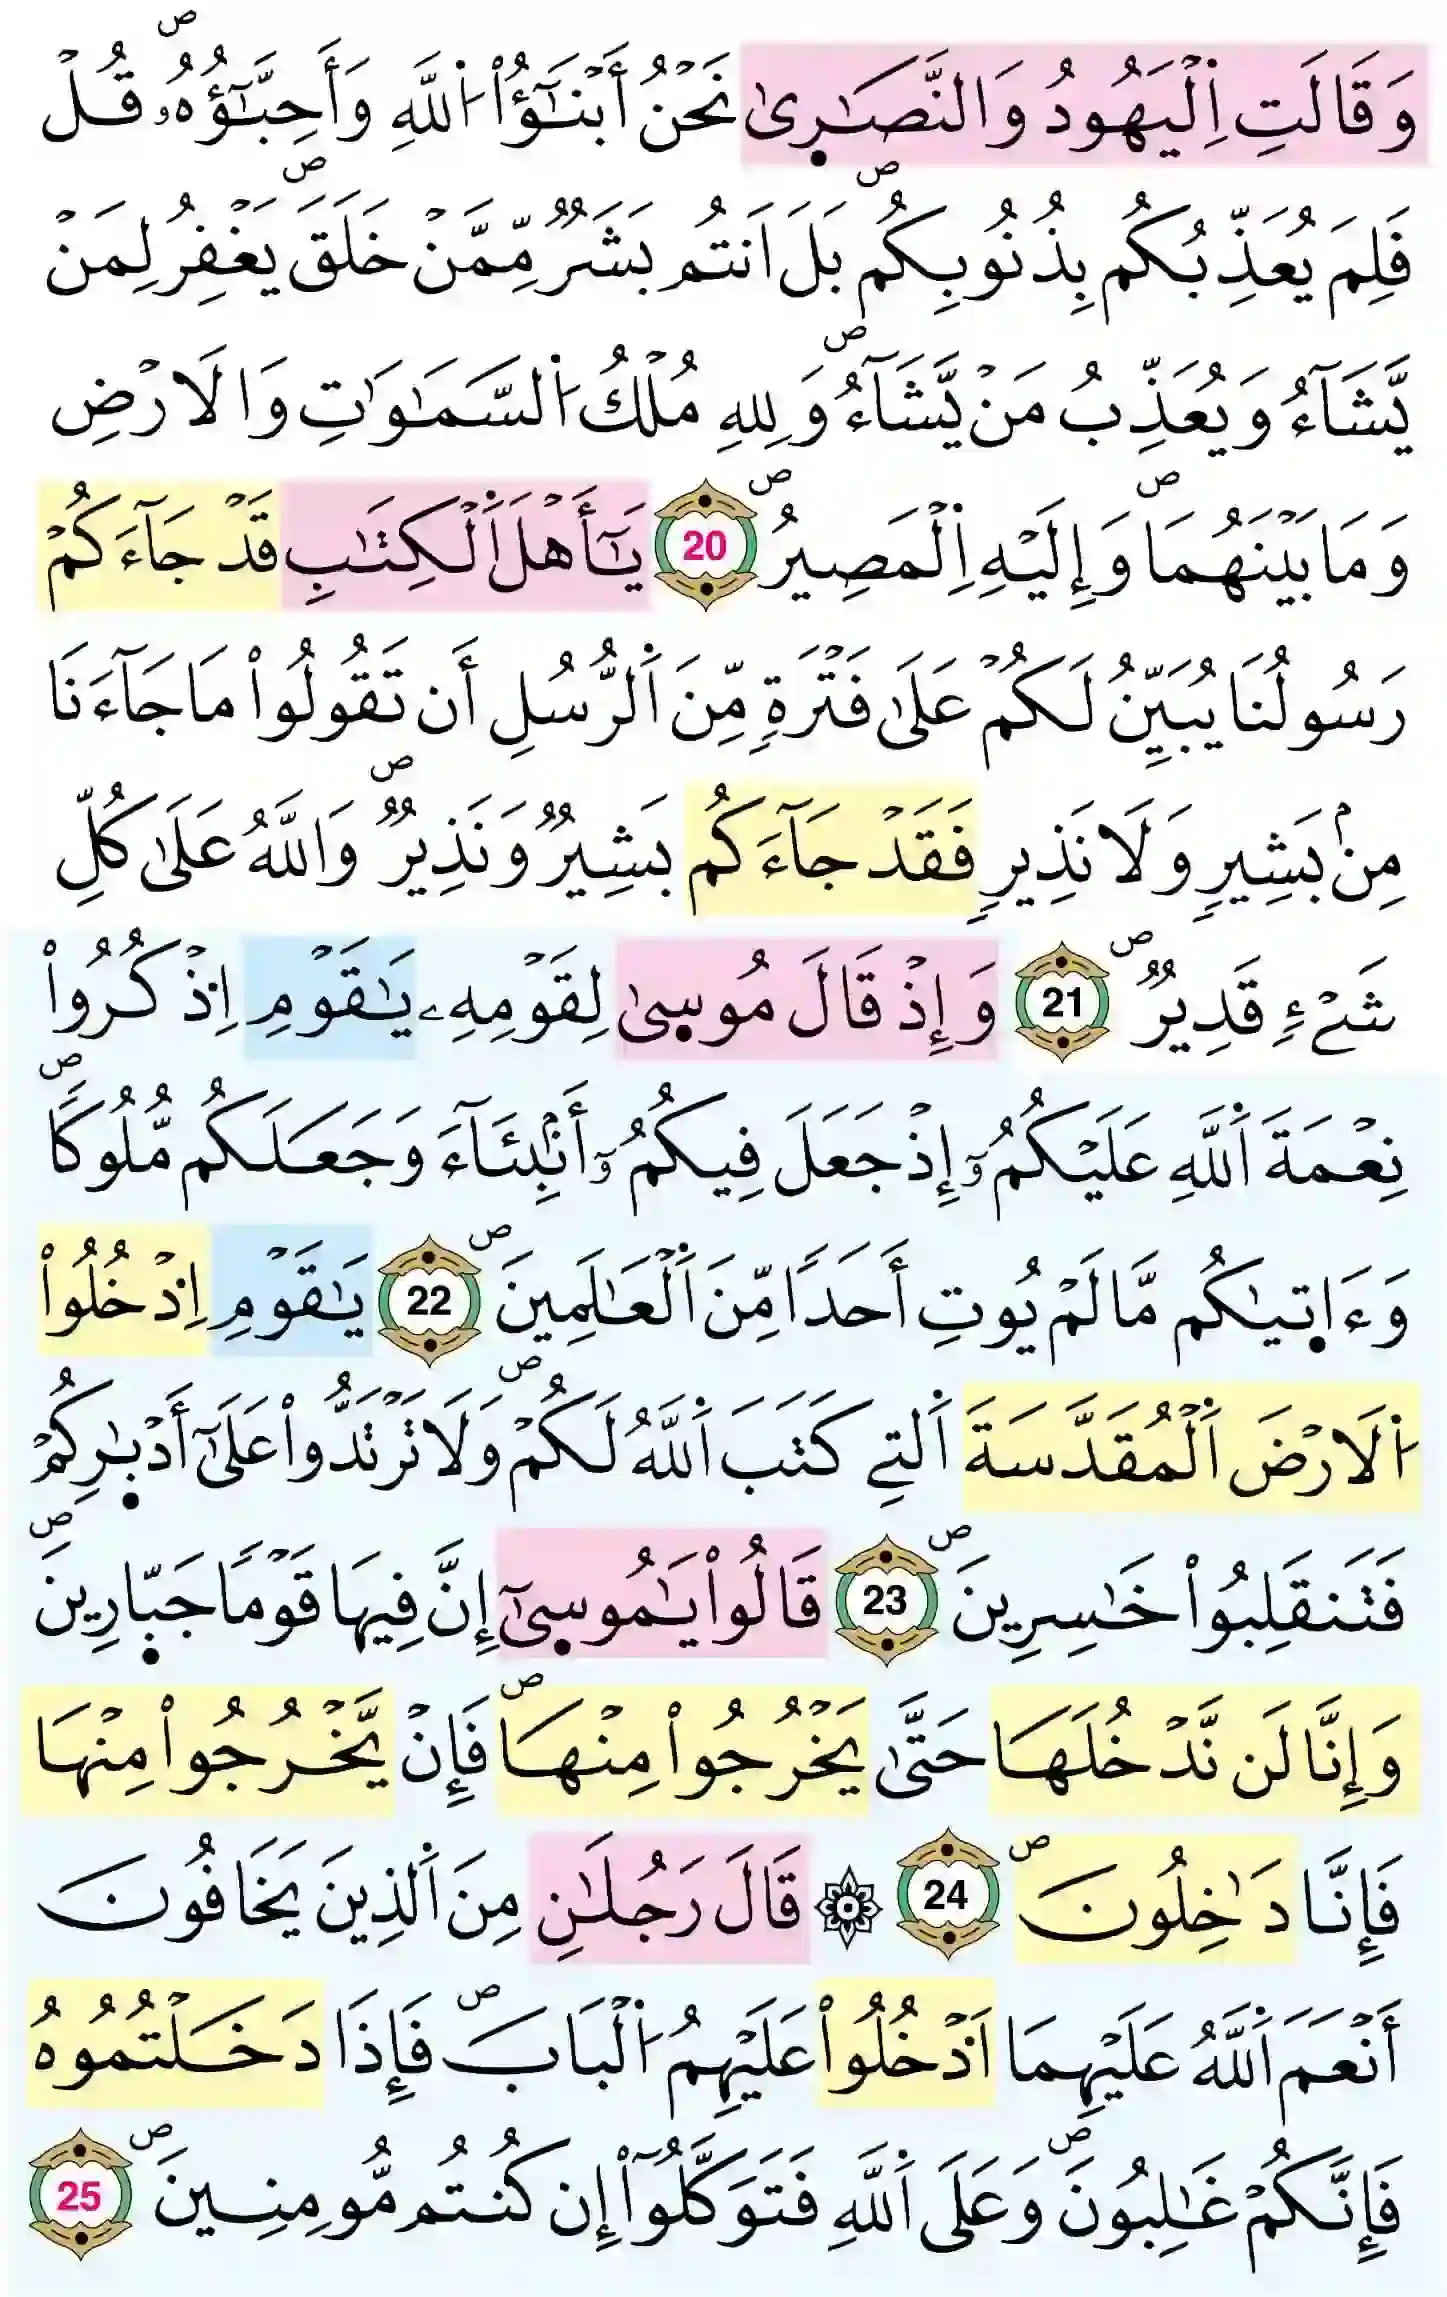 وَقَالَتِ اِ۬لْيَهُودُ وَالنَّصَٰر۪يٰ نَحْنُ أَبْنَٰٓؤُاْ اُ۬للَّهِ وَأَحِبَّٰٓؤُهُۥۖ قُلْ
فَلِمَ يُعَذِّبُكُم بِذُنُوبِكُمۖ بَلَ اَنتُم بَشَرٞ مِّمَّنْ خَلَقَۖ يَغْفِرُ لِمَنْ
يَّشَآءُ وَيُعَذِّبُ مَنْ يَّشَآءُۖ وَلِلهِ مُلْكُ اُ۬لسَّمَٰوَٰتِ وَالَارْضِ
وَمَا بَيْنَهُمَاۖ وَإِلَيْهِ اِ۬لْمَصِيرُۖ 20 يَٰٓأَهْلَ اَ۬لْكِتَٰبِ قَدْ جَآءَكُمْ
رَسُولُنَا يُبَيِّنُ لَكُمْ عَلَىٰ فَتْرَةٖ مِّنَ اَ۬لرُّسُلِ أَن تَقُولُواْ مَا جَآءَنَا
مِنۢ بَشِيرٖ وَلَا نَذِيرٖ فَقَدْ جَآءَكُم بَشِيرٞ وَنَذِيرٞۖ وَاللَّهُ عَلَىٰ كُلِّ
شَےْءٖ قَدِيرٞۖ 21 وَإِذْ قَالَ مُوس۪يٰ لِقَوْمِهِۦ يَٰقَوْمِ اِ۟ذْكُرُواْ
نِعْمَةَ اَ۬للَّهِ عَلَيْكُمُۥٓ إِذْ جَعَلَ فِيكُمُۥٓ أَنۢبِئَآءَ وَجَعَلَكُم مُّلُوكاٗۖ
وَءَات۪يٰكُم مَّا لَمْ يُوتِ أَحَداٗ مِّنَ اَ۬لْعَٰلَمِينَۖ 22 يَٰقَوْمِ اِ۟دْخُلُواْ
اُ۬لَارْضَ اَ۬لْمُقَدَّسَةَ اَ۬لتِے كَتَبَ اَ۬للَّهُ لَكُمْۖ وَلَا تَرْتَدُّواْ عَلَىٰٓ أَدْبٰ۪رِكُمْ
فَتَنقَلِبُواْ خَٰسِرِينَۖ 23 قَالُواْ يَٰمُوس۪يٰٓ إِنَّ فِيهَا قَوْماٗ جَبّ۪ارِينَۖ
وَإِنَّا لَن نَّدْخُلَهَا حَتَّىٰ يَخْرُجُواْ مِنْهَاۖ فَإِنْ يَّخْرُجُواْ مِنْهَا
فَإِنَّا دَٰخِلُونَۖ 24 ۞ قَالَ رَجُلَٰنِ مِنَ اَ۬لذِينَ يَخَافُونَ
أَنْعَمَ اَ۬للَّهُ عَلَيْهِمَا اَ۟دْخُلُواْ عَلَيْهِمُ اُ۬لْبَابَۖ فَإِذَا دَخَلْتُمُوهُ
فَإِنَّكُمْ غَٰلِبُونَۖ وَعَلَى اَ۬للَّهِ فَتَوَكَّلُوٓاْ إِن كُنتُم مُّومِنِينَۖ 25